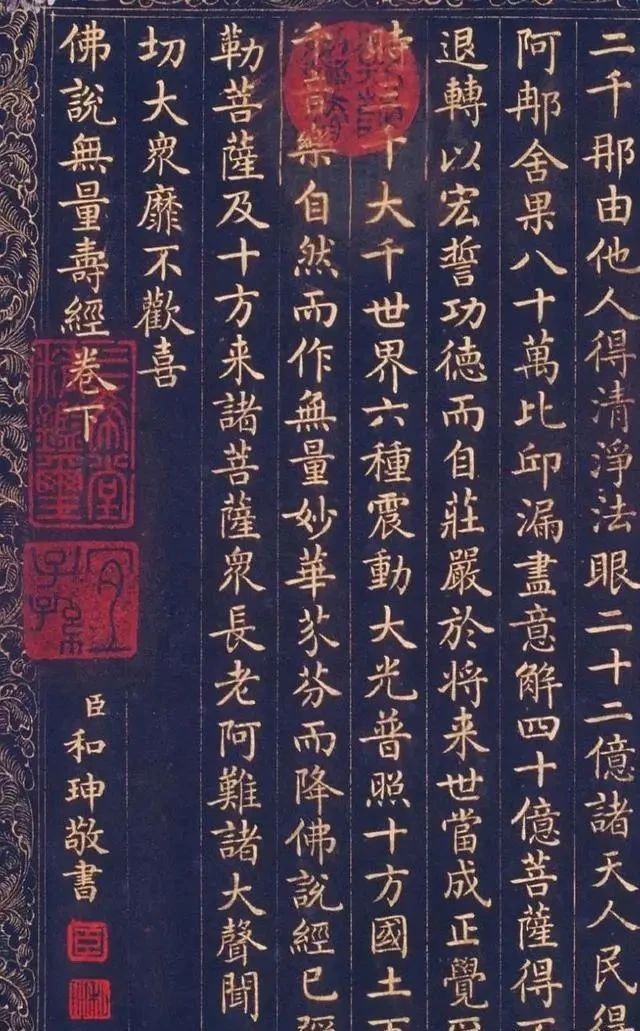 二千那由他人得清淨法眼二十二億諸天人民得
阿那舍果八十萬比邱漏盡意解四十億菩薩得
退轉以宏誓功德而自莊嚴於將来世當成正覺
時三千大千世界六種震動大光普照十方國土
千音樂自然而作無量妙華芬芬而降佛說經已彌
勒菩薩及十方来諸菩薩衆長老阿難諸大聲聞
切大衆靡不歡喜
佛說無量壽經卷下
三希堂精鑑璽
宜子孫
臣和珅敬書
臣